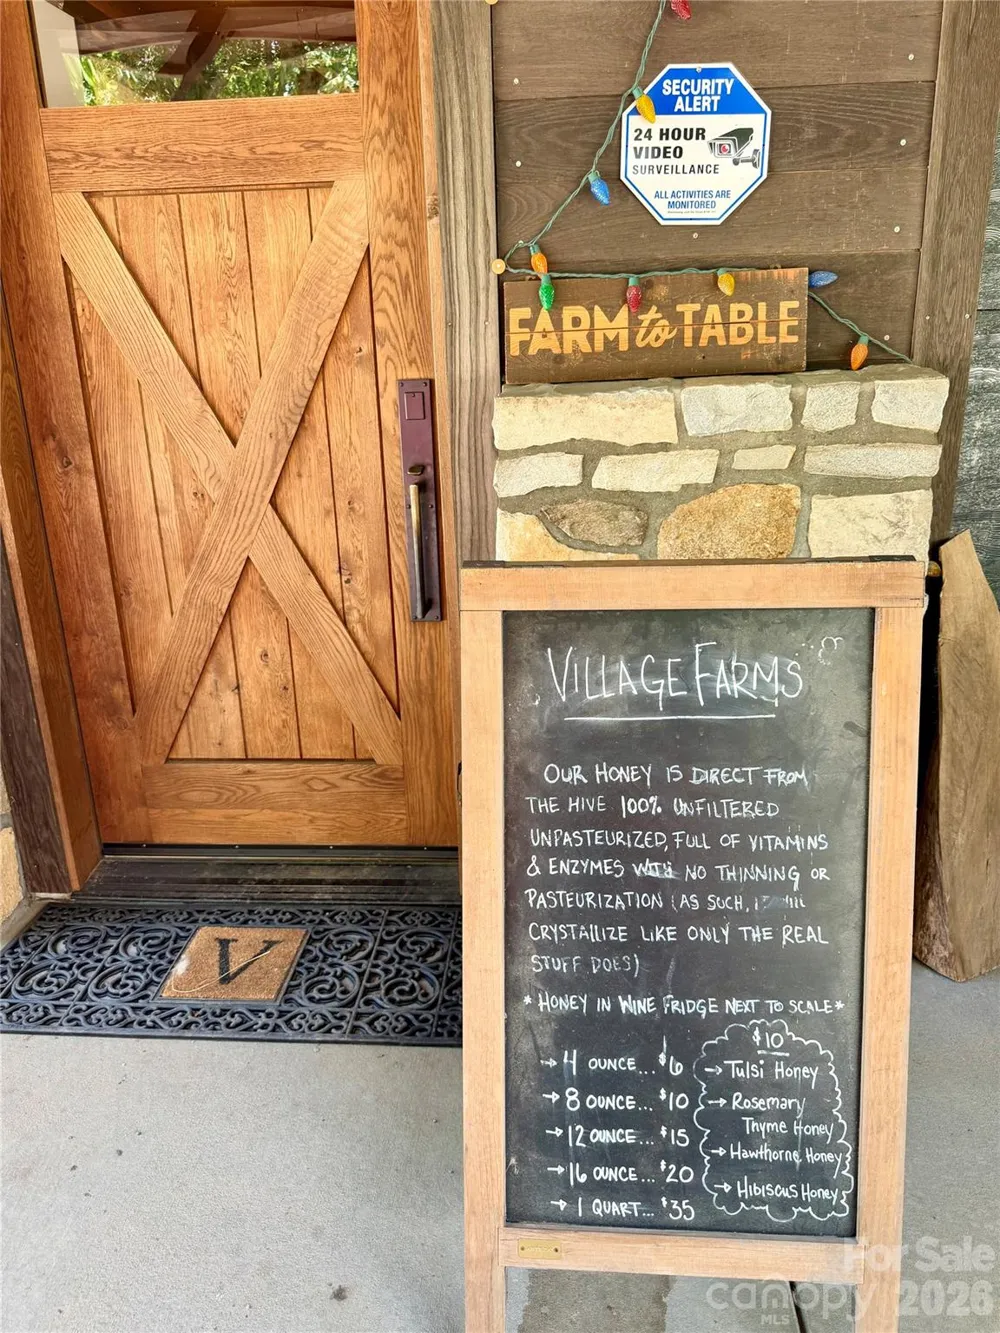 SECURITY
ALERT
24 HOUR
VIDEO
SURVEILLANCE
ALL ACTIVITIES ARE
MONITORED
FARM to TABLE
V
VILLAGE FARMS
OUR HONEY IS DIRECT FROM
THE HIVE 100% UNFILTERED
UNPASTEURIZED, FULL OF VITAMINS
& ENZYMES WITH NO THINNING OR
PASTEURIZATION (AS SUCH,
CRYSTALLIZE LIKE ONLY THE REAL
STUFF DOES)
* HONEY IN WINE FRIDGE NEXT TO SCALE *
→ 4 OUNCE... $6
→ 8 OUNCE... $10
→ 12 OUNCE... $15
→ 16 OUNCE... $20
→ 1 QUART... $35
$10
→ Tulsi Honey
→ Rosemary
Thyme Honey
→ Hawthorne Honey
→ Hibiscus Honey
For Sale
canopy 2026
MLS